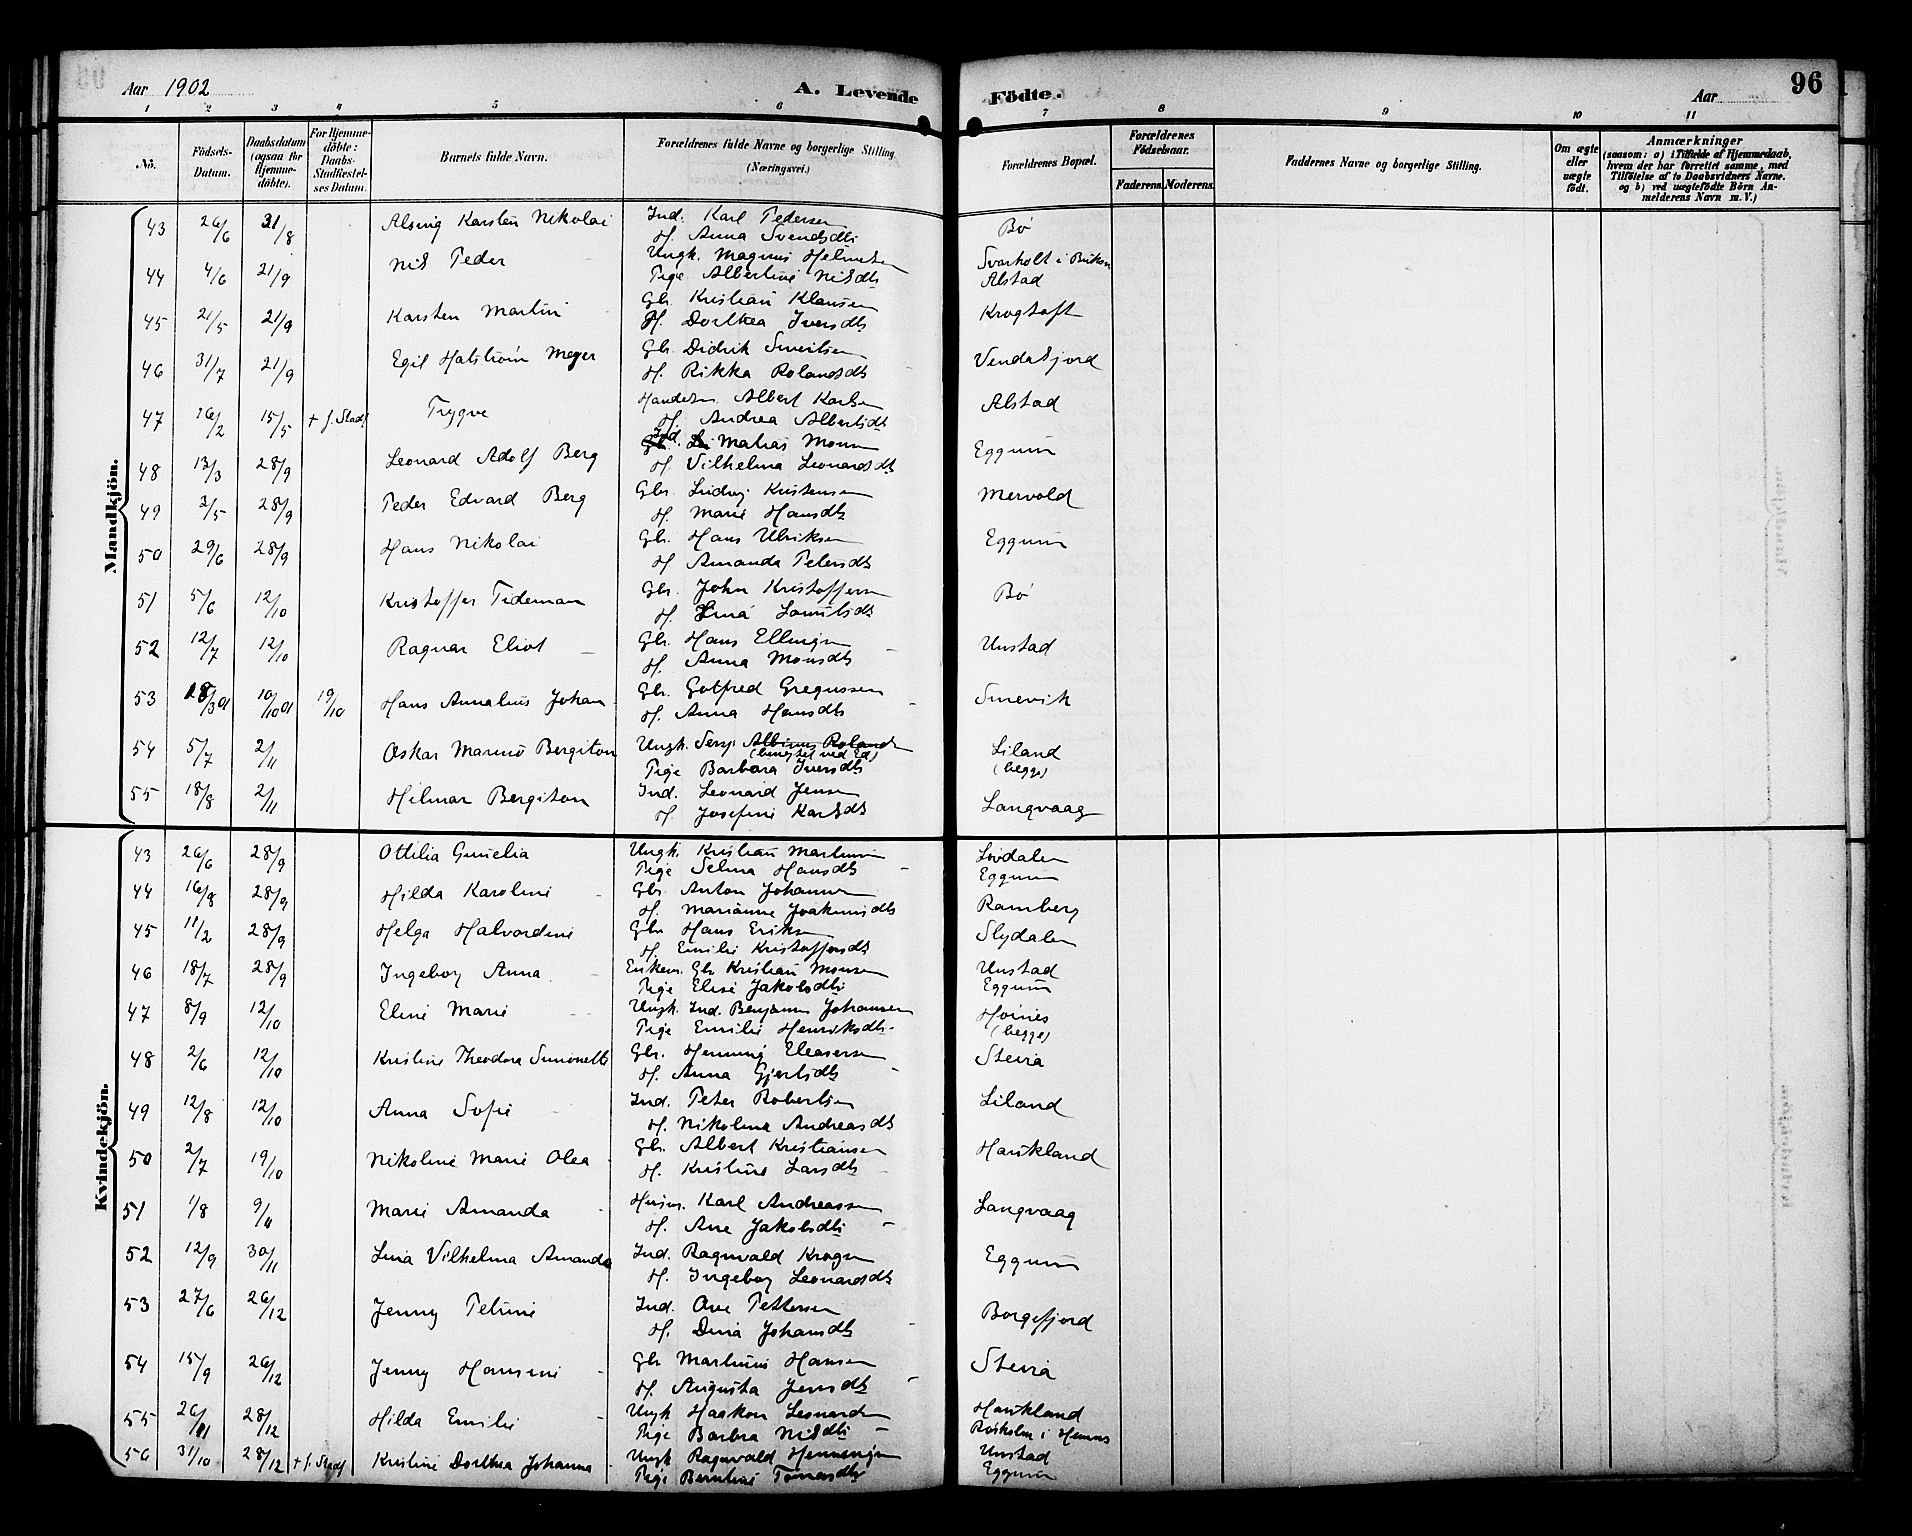 Aar 1902 A. Levende Födte. Aar 96
1 2 3 4 5 6 7 8 9 10 11
No. Födsels-Datum. Daabsdatum (ogsaa for Hjemme-döbte). For Hjemme-döbte: Daabs-Stadfæstel-ses Datum. Barnets fulde Navn. Forældrenes fulde Navne og borgerlige Stilling. (Næringsvei.) Forældrenes Bopæl. Forældrenes Födselsaar. Faderens. Moderens. Faddernes Navne og borgerlige Stilling. Om ægte eller uægte födt. Anmærkninger (saasom: a) i Tilfælde af Hjemmedaab, hvem der har forrettet samme, med Tilföielse af to Daabsvidners Navne, og b) ved uægtefödte Börn An-melderens Navn m. V.)
Mandkjön.
43 26/6 31/8 Alsing Karsten Nikolai Ind. Karl Pedersen Bø
H. Anna Svendsdtr
44 4/6 21/9 Nils Peder Ungk. Magnus Helmersen Svarholt i Buksn
Pige Albertine Nilsdtr Alstad
45 21/5 21/9 Karsten Martin Gbr. Kristian Klausen Krogtoft
H. Dorthea Iversdtr
46 31/7 21/9 Egil Halstrøm Meyer Gbr. Didrik Sivertsen Vendalsjord
H. Rikka Rolandsdtr
47 16/2 15/5 + f. Stadf. Trygve Handelsm. Albert Karlsen Alstad
H. Andrea Albertsdtr
48 13/3 28/9 Leonard Adolf Berg Ind. Matias Monsen Eggum
H. Vilhelma Leonardsdtr
49 3/5 28/9 Peder Edvard Berg Gbr. Ludvig Kristensen Mervold
H. Marie Hansdtr
50 29/6 28/9 Hans Nikolai Gbr. Hans Ulriksen Eggum
H. Amanda Petersdtr
51 5/6 12/10 Kristoffer Tideman Gbr. John Kristoffersen Bø
H. Lina Lauritsdtr
52 12/7 12/10 Ragnar Eliot Gbr. Hans Ellingsen Unstad
H. Anna Monsdtr
53 28/3 01 10/10 01 19/10 Hans Annalius Johan Gbr. Gotfred Gregussen Smevik
H. Anna Hansdtr
54 5/7 2/11 Oskar Marinó Bergiton Ungk. Serg. Albinus Roland Liland
(benegtet ved Ed) (begge)
Pige Barbara Iversdtr
55 18/8 2/11 Hilmar Bergiton Ind. Leonard Jensen Langvaag
H. Josefine Karlsdtr
Kvindekjön.
43 26/6 28/9 Ottilia Gunelia Ungk. Kristian Martinsen Lovdalen
Pige Selma Hansdtr Eggum
44 16/8 28/9 Hilda Karoline Gbr. Anton Johannsen Ramberg
H. Marianne Joakimsdtr
45 11/2 28/9 Helga Halvardine Gbr. Hans Eriksen Slydalen
H. Emilie Kristoffersdtr
46 18/7 28/9 Ingeborg Anna Enkem. Gbr Kristian Monsen Unstad
Pige Elise Jakobsdtr Eggum
47 8/9 12/10 Eline Marie Ungk. Ind. Benjamin Johansen Høines
Pige Emilie Henriksdtr. (begge)
48 2/6 12/10 Kristine Theodora Simonette Gbr. Henning Eleasersen Steira
H. Anna Gjertsdtr
49 12/8 12/10 Anna Sofie Ind. Peter Robertsen Liland
H. Nikolina Andreasdtr
50 2/7 19/10 Nikoline Marie Olea Gbr. Albert Kristiansen Haukland
H. Kristine Larsdtr
51 1/8 9/11 Marie Amanda Husm. Karl Andreassen Langvaag
H. Ane Jakobsdtr
52 12/9 30/11 Lina Vilhelma Amanda Ind. Ragnvald Krogsen Eggum
H. Ingeborg Leonardsdtr
53 27/6 26/12 Jenny Petrine Ind. Ove Pettersen Borgefjord
H. Dina Johansdtr
54 15/9 26/12 Jenny Hansine Gbr Martinus Hansen Steira
H. Augusta Jensdtr
55 26/11 28/12 Hilda Emilie Ungk Haakon Leonardsen Haukland
Pige Barbra Nilsdtr Røsholm i Hemnes
56 31/10 28/12 + f. Stadf Kristine Dorthea Johanna Ungk Ragnvald Henningsen Unstad
Pige Berntine Tomasdtr Eggum